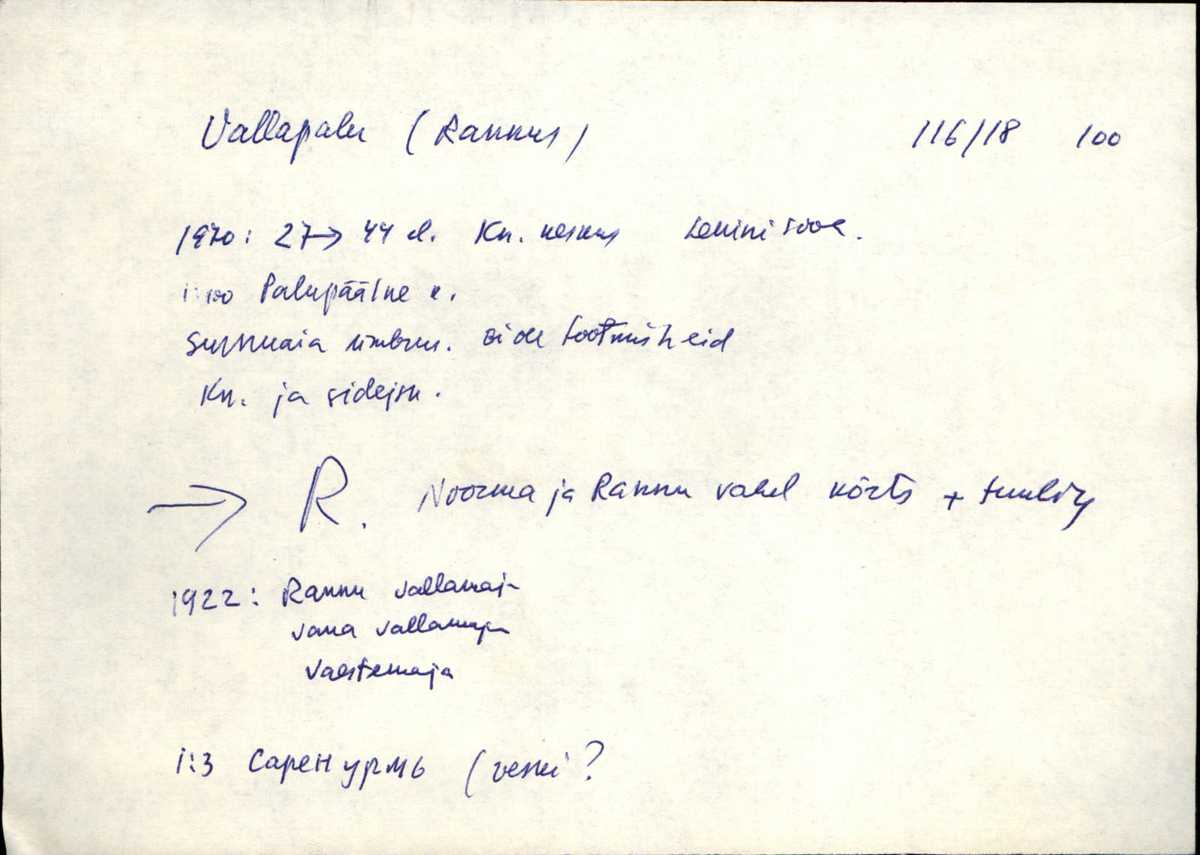 Vallapalu (Rannus) 116/18 100
1970: 27 → 44 el. Kn. keskus Lenini
1:100 Palupäälne k.
Surnuaia ümbrus. ei ole tootmisheid
Kn. ja sidejsk.
→ R. Noorma ja Rannu vahel kõrts +
1922: Rannu vallamaja
vana vallamaja
vaestemaja
1:3 Саренурмь (veski?